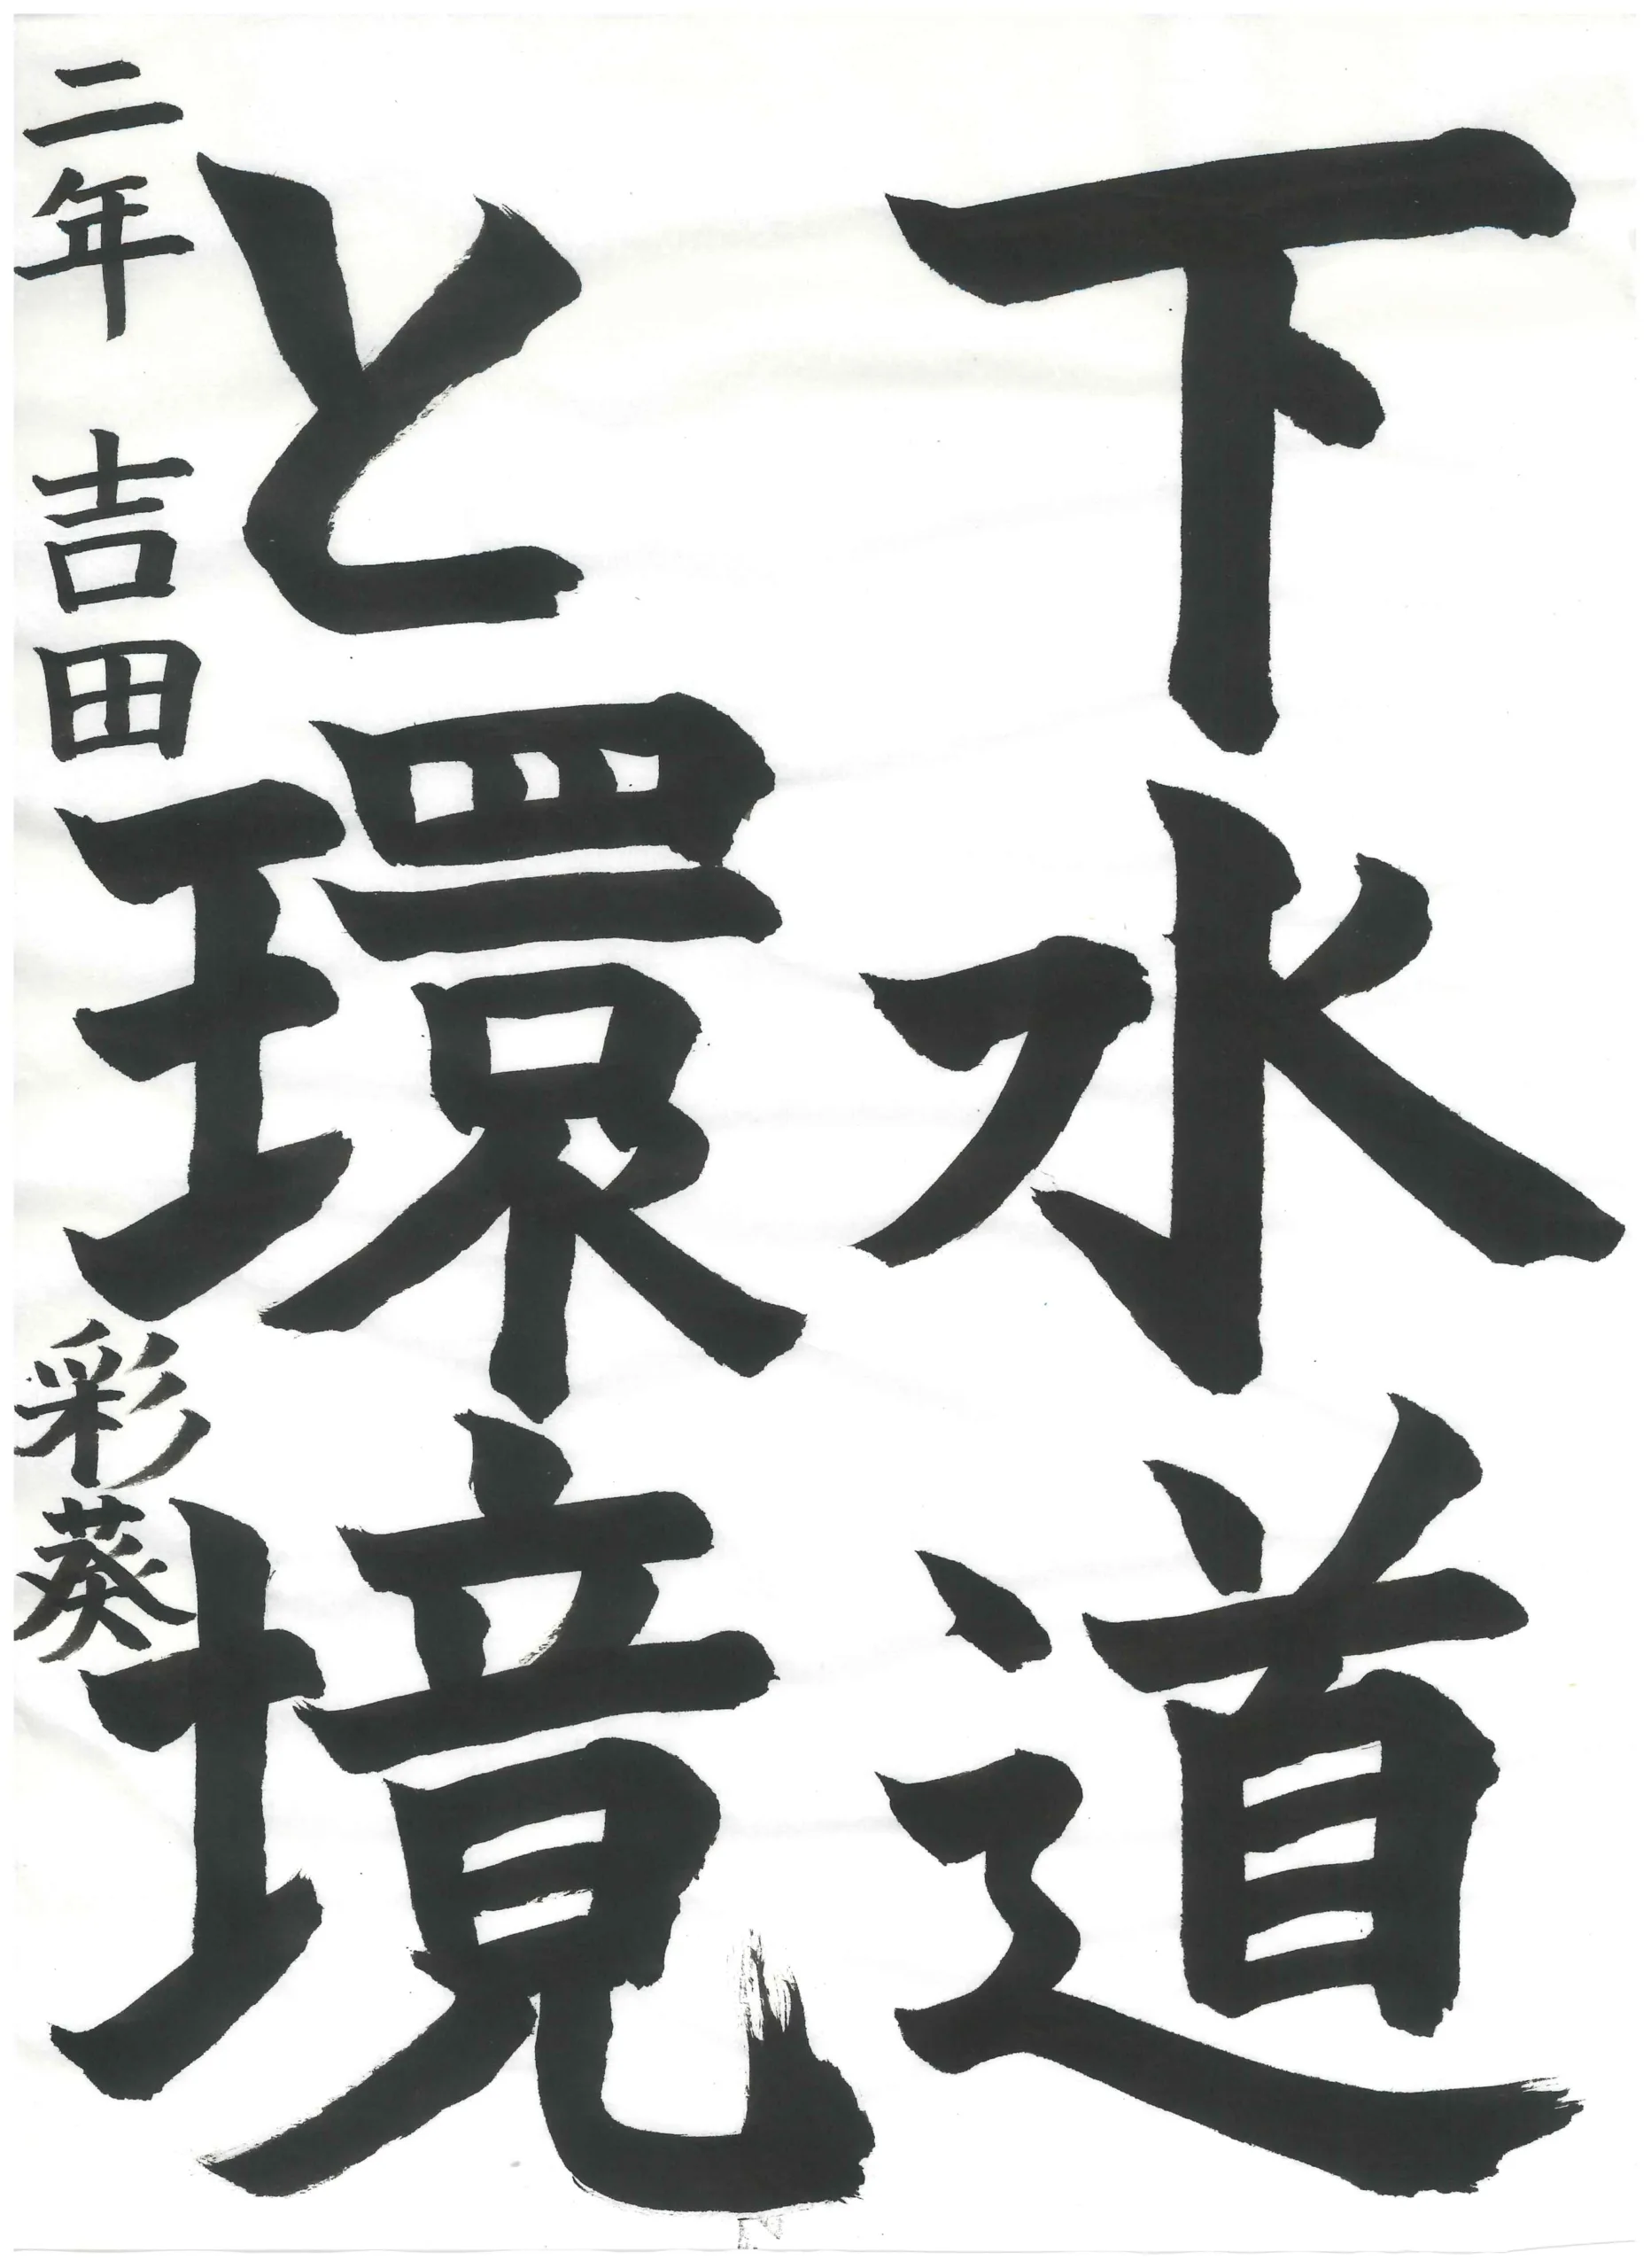 下水道
と環境
二年 吉田 彩葵